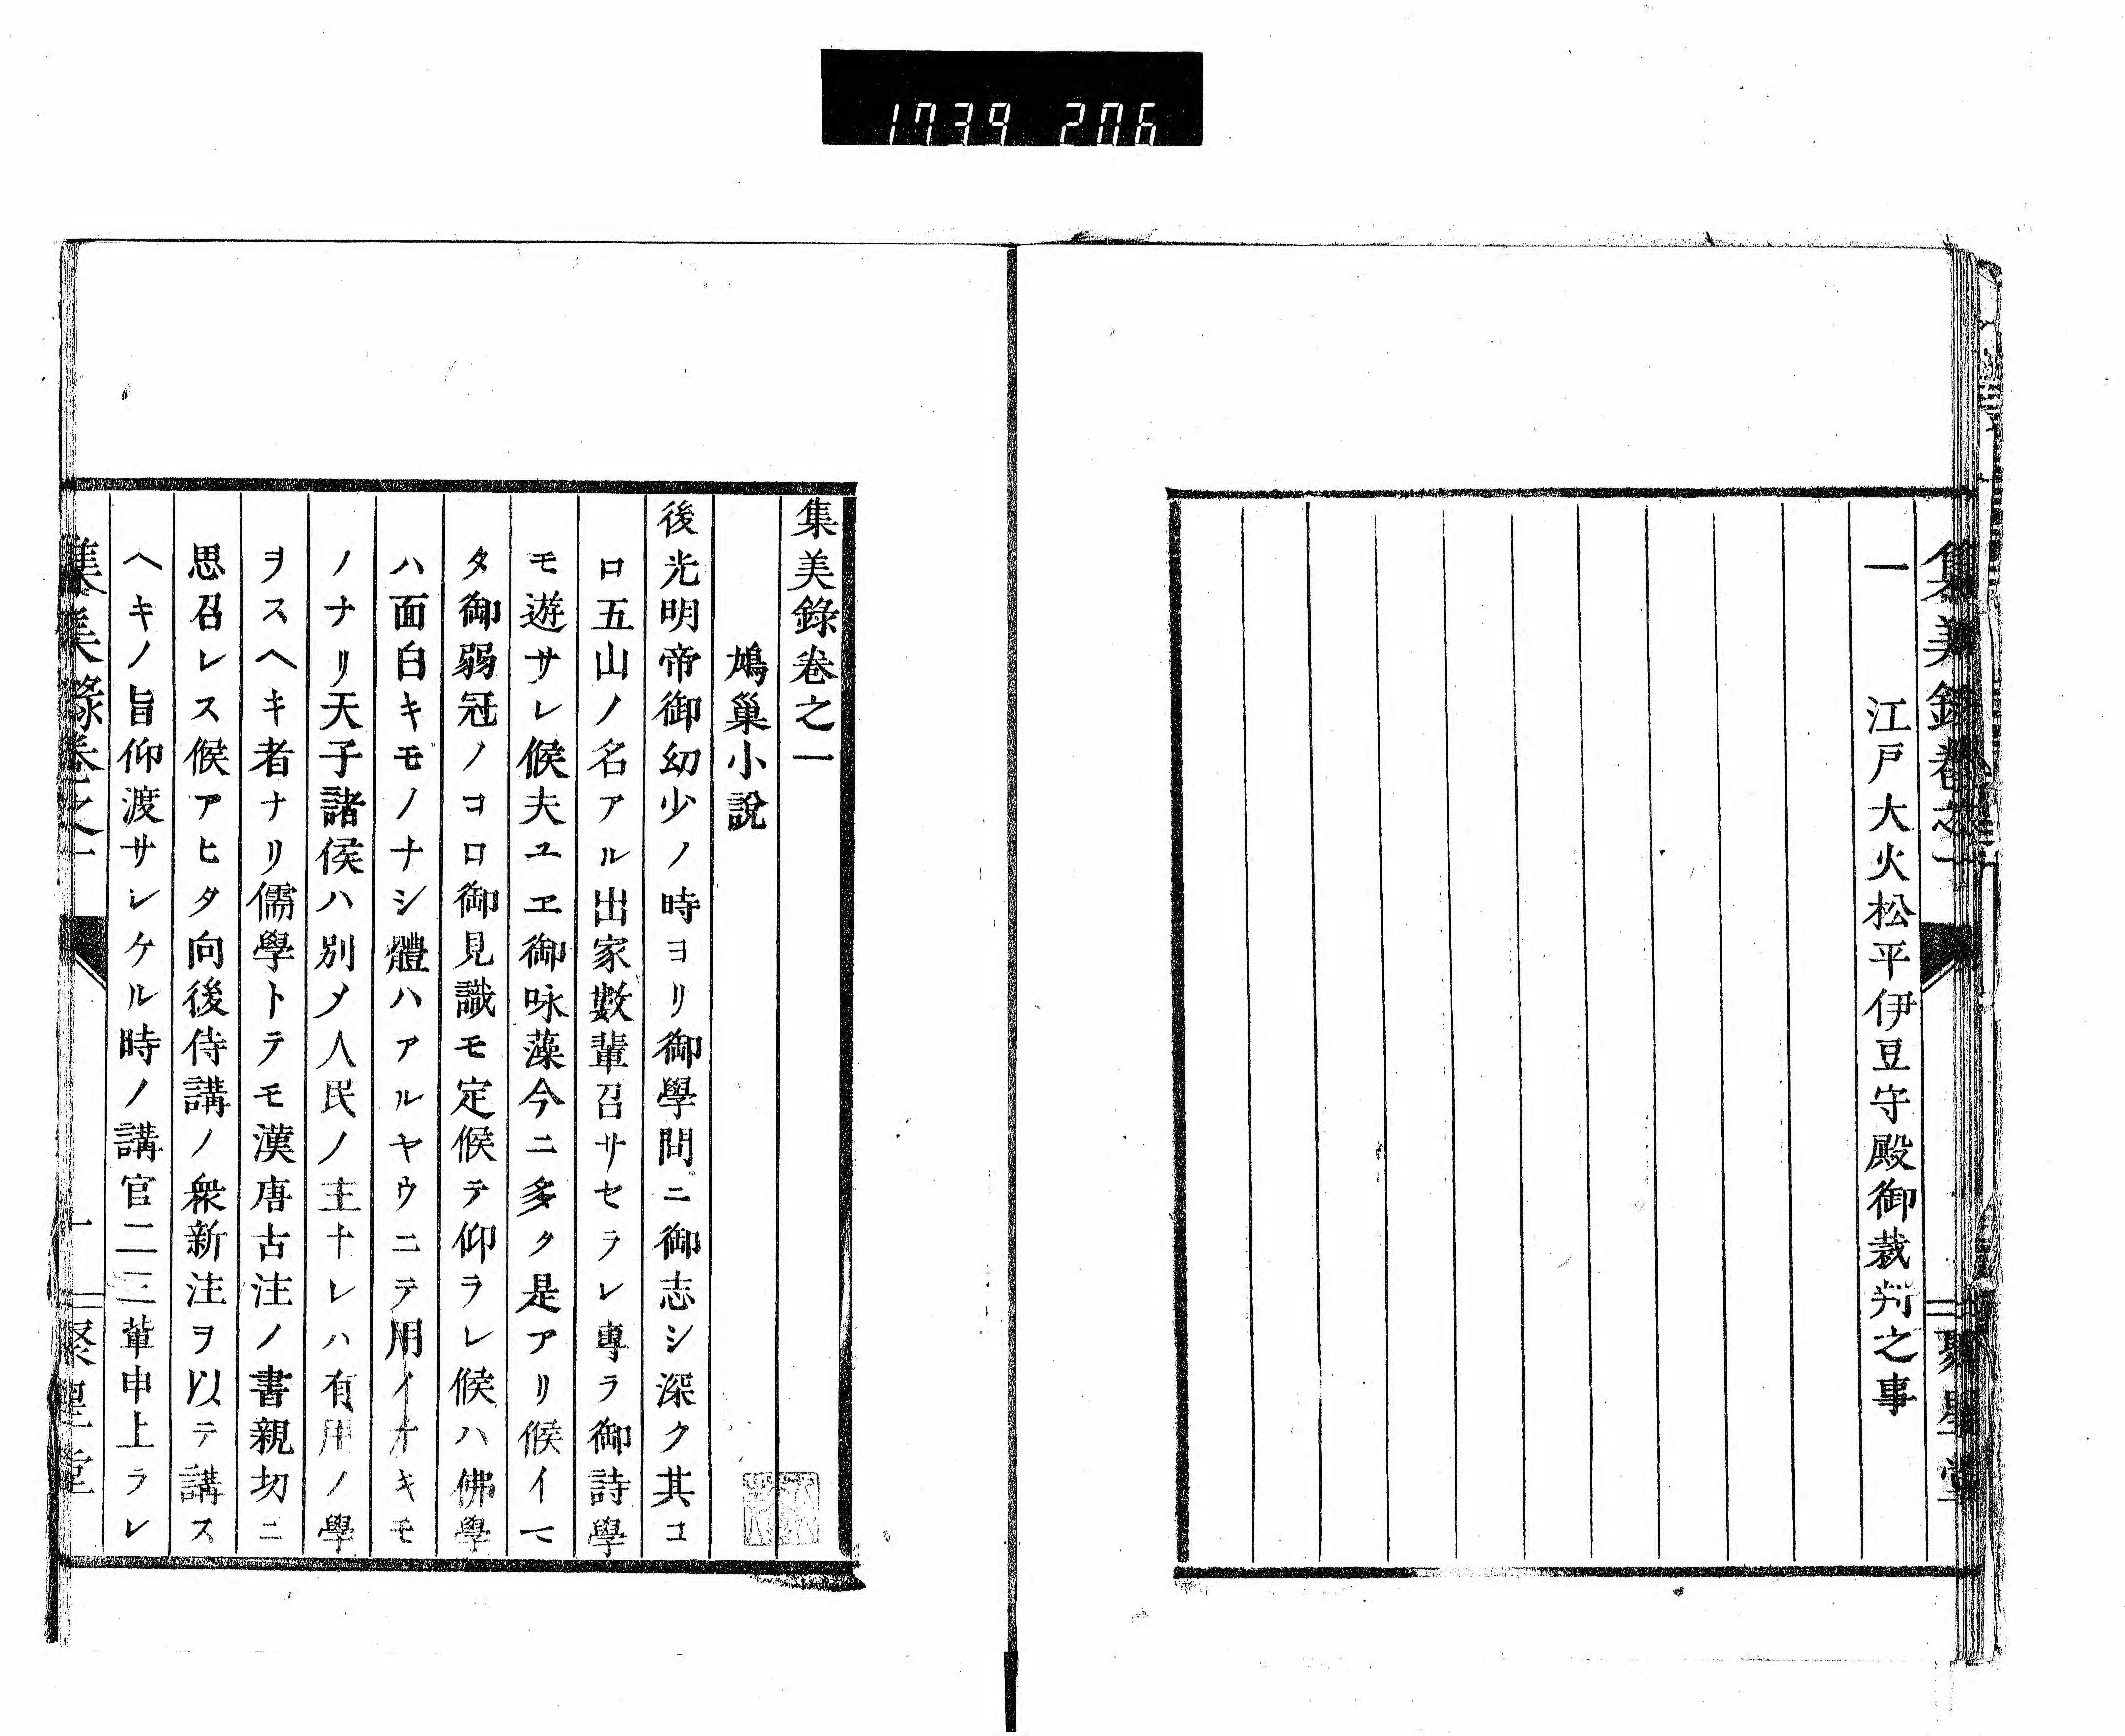 1739 206
集美錄卷之一
一　江戸大火松平伊豆守殿御裁判之事
聚星堂
集美錄卷之一
鳩巢小說
後光明帝御幼少ノ時ヨリ御學問ニ御志シ深ク其コ
ロ五山ノ名アル出家數輩召サセラレ專ラ御詩學
モ遊サレ候夫ユヱ御咏藻今ニ多ク是アリ候イマ
タ御弱冠ノコロ御見識モ定候テ仰ラレ候ハ佛學
ハ面白キモノナシ體ハアルヤウニテ用イナキモ
ノナリ天子諸侯ハ別メ人民ノ主ナレハ有用ノ學
ヲスヘキ者ナリ儒學トテモ漢唐古注ノ書親切ニ
思召レス候アヒタ向後侍講ノ衆新注ヲ以テ講ス
ヘキノ旨仰渡サレケル時ノ講官二三輩申上ラレ
集美錄卷之一
一
聚星堂